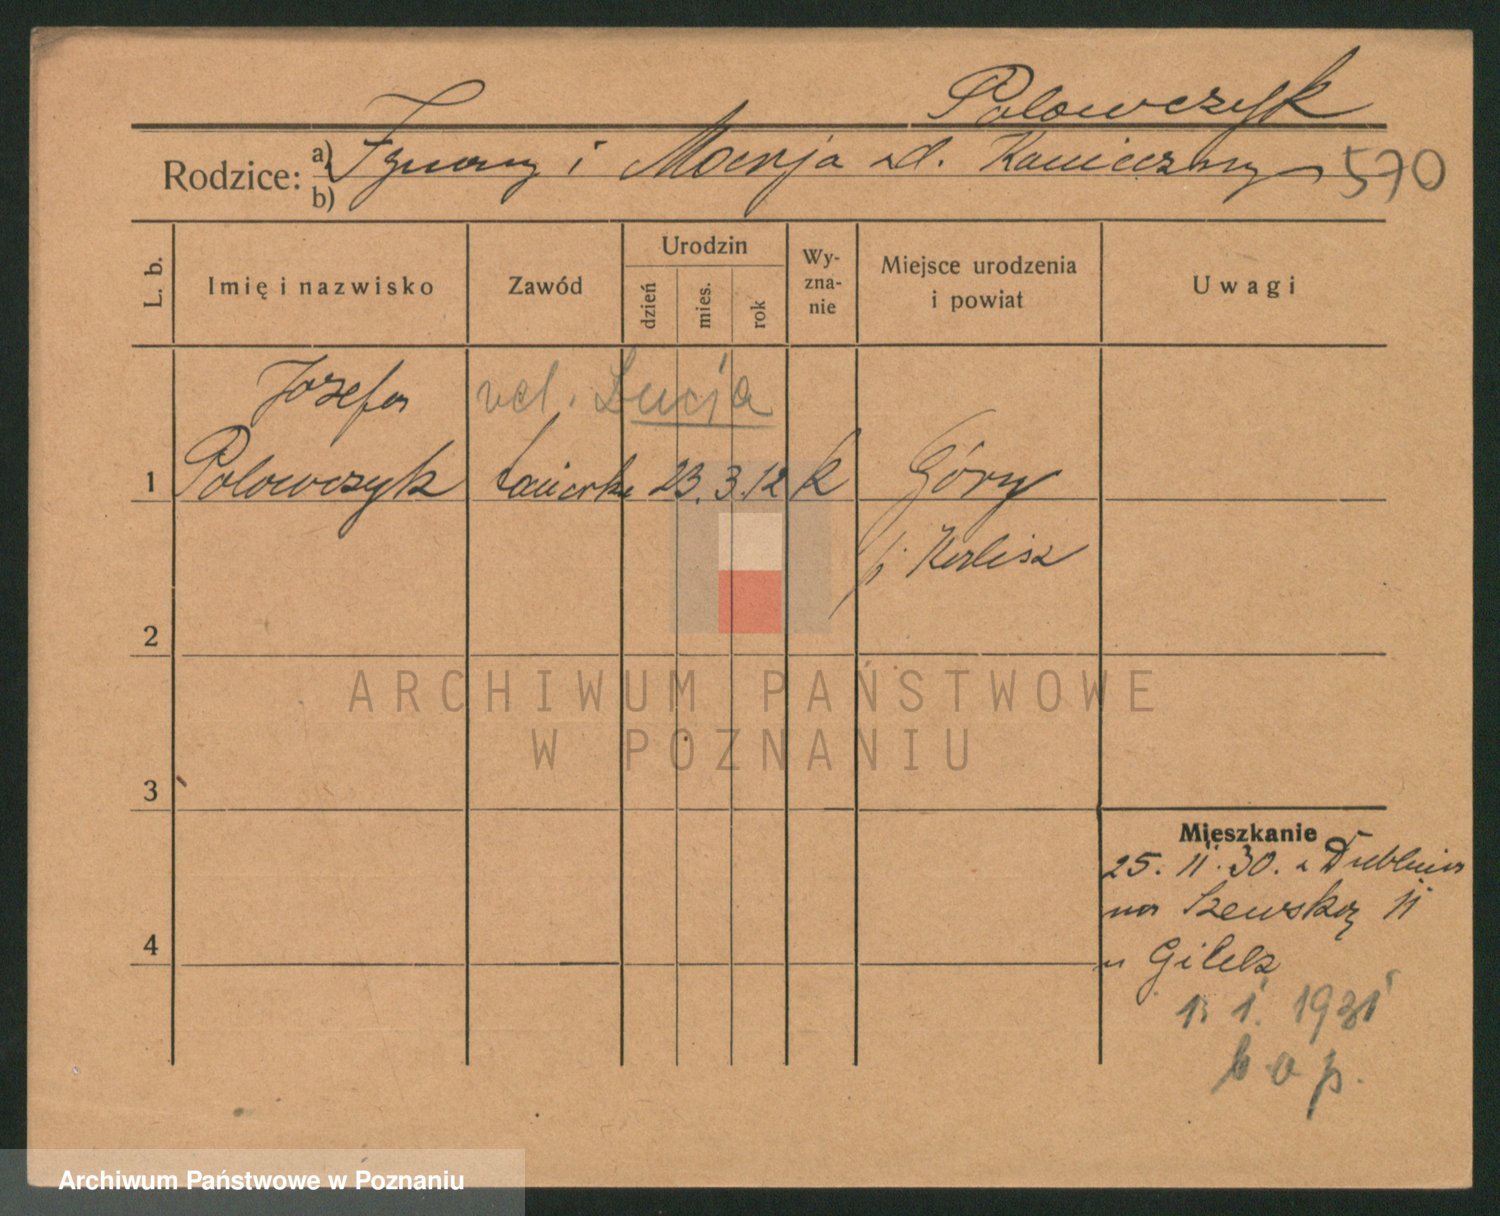 Polowczyk
Rodzice: a) Ignacy i Marja zd. Kanieczny
b)
570
L. b.
Imię i nazwisko
Zawód
Urodzin
dzień
mies.
rok
Wy-
zna-
nie
Miejsce urodzenia
i powiat
Uwagi
Józefa vel. Łucja
1 Polowczyk tancerka 23. 3. 12 k Góry
p. Kalisz
2
3
4
Mieszkanie
25. 11. 30. z Dublina
na Szewską 11
u Gilek
1. 1. 1931
b. o. p.
ARCHIWUM PAŃSTWOWE
W POZNANIU
Archiwum Państwowe w Poznaniu